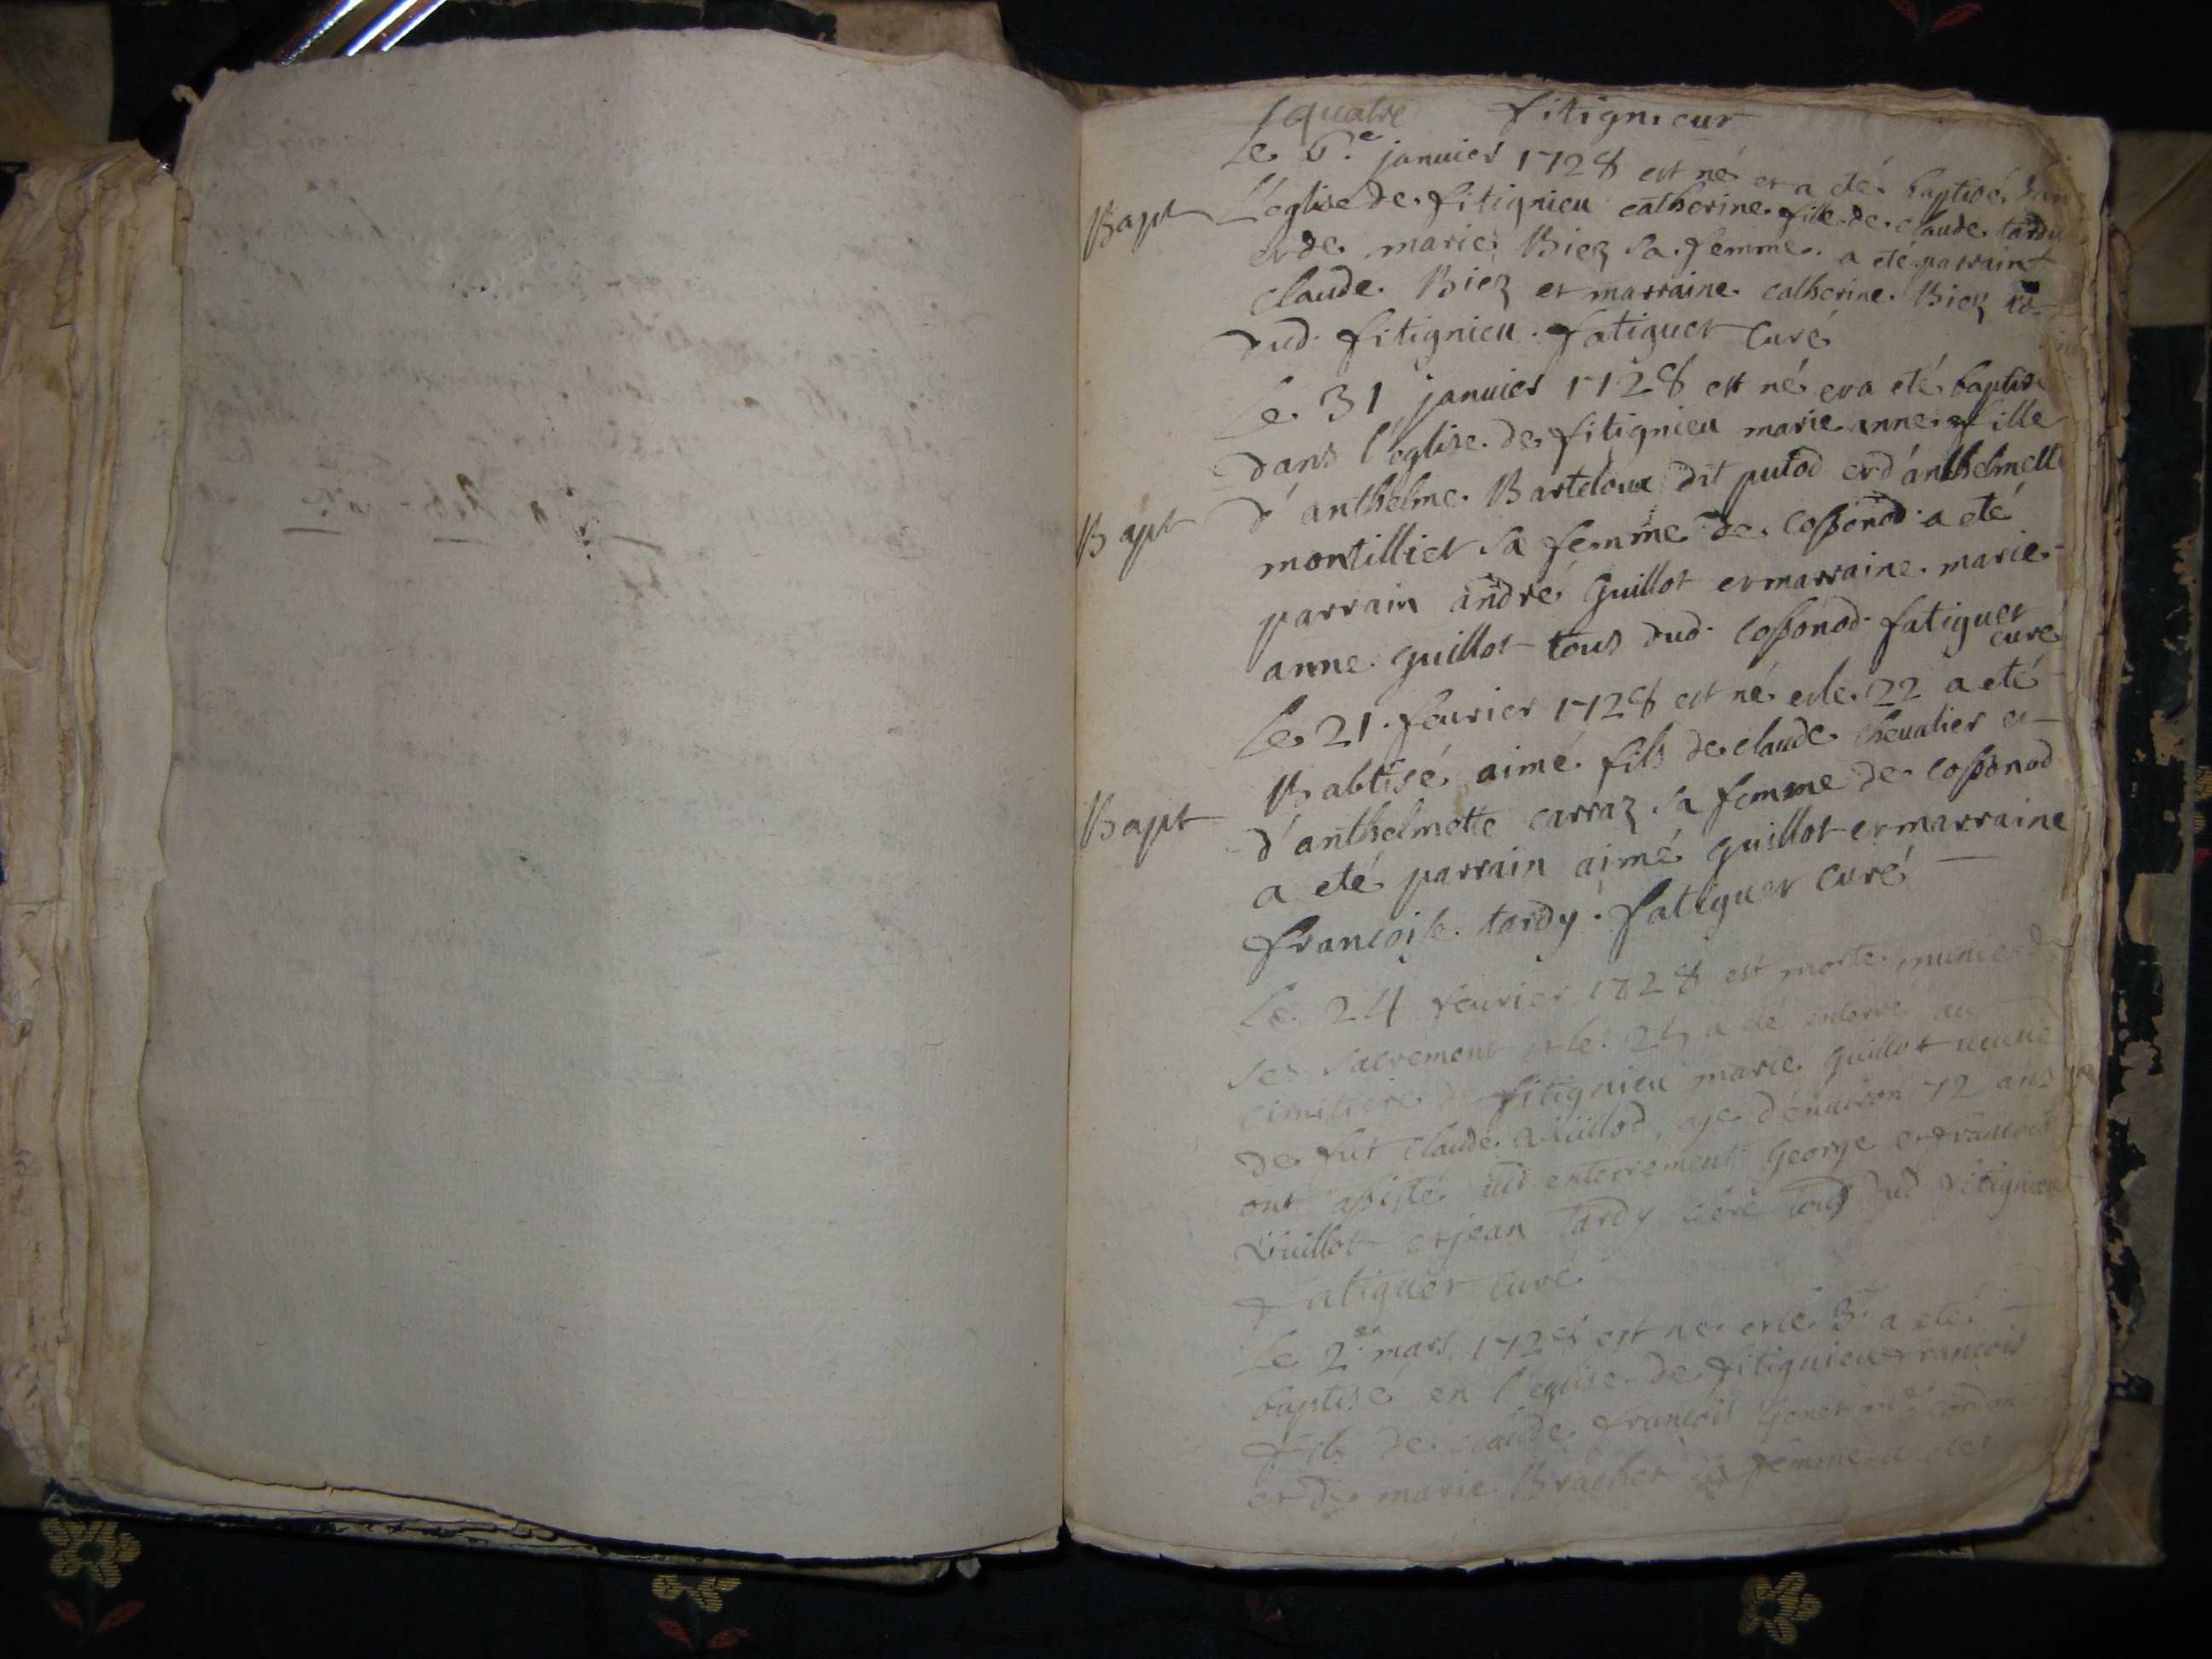 quatre fitignieur
Le 6.e januier 1728 est né et a eté baptisé dans
Bapt L'église de fitignieu catherine fille de claude tardy
et de marie Biez sa femme. a eté parrain
claude Biez et marraine catherine Biez
dud. fitignieu. fatiguet curé
Le 31 januier 1728 est né et a eté baptisé
dans l'église de fitignieu marie anne fille
Bapt d'anthelme Barteloux dit putod et d'anthelmette
montilliet sa femme de cossonod a eté
parrain andré Guillot et marraine marie
anne guillot tous dud. cossonod. fatiguet
curé
Le 21. feurier 1728 est né et le 22 a eté
Babtisé aimé fils de claude cheualier et
Bapt d'anthelmette carraz sa femme de cossonod
a eté parrain aimé guillot et marraine
francoise tardy. fatiguet curé
Le 24 feurier 1728 est morte munie de
ses sacrement et le 25 a eté enterré au
cimitiere de fitignieu marie guillot ueuue
de fut claude age d'enuiron 72 ans
ont assisté aud enterrement George et francois
Guillot et jean tardy tous dud fitignieu
fatiguet curé
Le 2.e mars 1728 est né et le 3.e a eté
baptisé en l'eglise de fitignieu francois
fils de claude francois
et de marie Brachet sa femme a eté